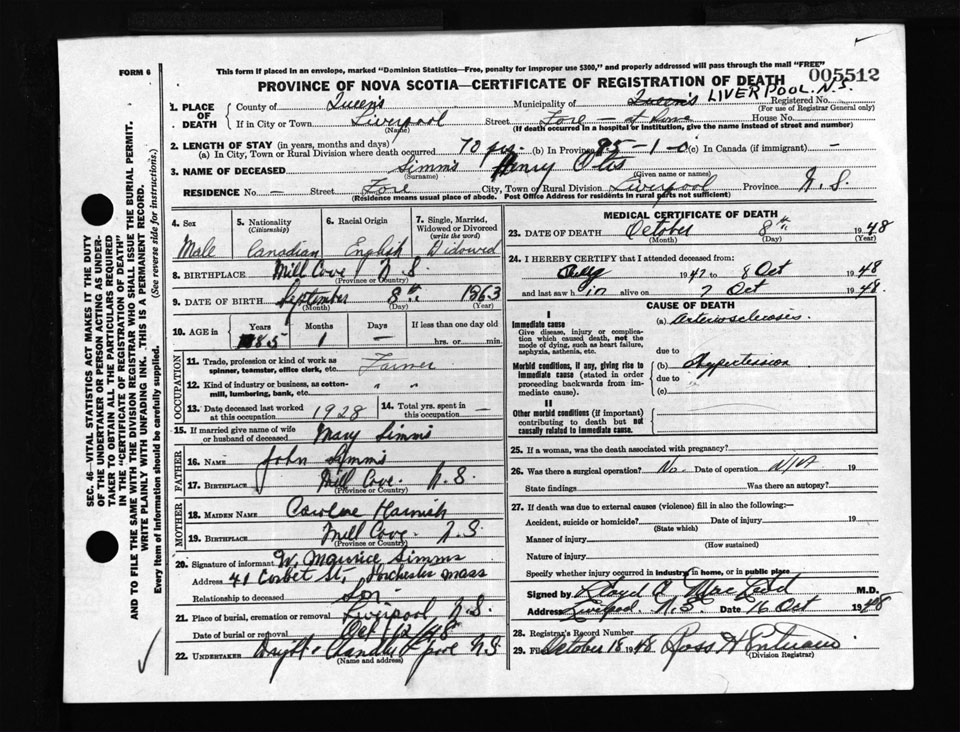 This form if placed in an envelope, marked "Dominion Statistics—Free, penalty for improper use $300," and properly addressed will pass through the mail "FREE"
FORM 6
005512
PROVINCE OF NOVA SCOTIA—CERTIFICATE OF REGISTRATION OF DEATH
LIVERPOOL. N.S.
1. PLACE OF DEATH County of Queen's Municipality of Queen's Registered No.
(For use of Registrar General only)
If in City or Town Liverpool Street Fore — at home House No.
(Name) (If death occurred in a hospital or institution, give the name instead of street and number)
2. LENGTH OF STAY (in years, months and days)
(a) In City, Town or Rural Division where death occurred 70 yrs. (b) In Province 85-1-0 (c) In Canada (if immigrant) —
3. NAME OF DECEASED Simms Henry Otis
(Surname) (Given name or names)
RESIDENCE No. — Street Fore City, Town or Rural Division Liverpool Province N.S.
(Residence means usual place of abode. Post Office Address for residents in rural parts not sufficient)
4. Sex 5. Nationality (Citizenship) 6. Racial Origin 7. Single, Married, Widowed or Divorced (write the word)
Male Canadian English Widowed
8. BIRTHPLACE Mill Cove N.S.
(Province or Country)
9. DATE OF BIRTH September 8th 1863
(Month) (Day) (Year)
10. AGE in Years Months Days If less than one day old
85 1 — hrs. or min.
OCCUPATION
11. Trade, profession or kind of work as spinner, teamster, office clerk, etc. Farmer
12. Kind of industry or business, as cotton-mill, lumbering, bank, etc. " "
13. Date deceased last worked at this occupation 1928 14. Total yrs. spent in this occupation —
15. If married give name of wife or husband of deceased Mary Simms
FATHER
16. NAME John Simms
17. BIRTHPLACE Mill Cove. N.S.
(Province or Country)
MOTHER
18. MAIDEN NAME Caroline Harnish
19. BIRTHPLACE Mill Cove. N.S.
(Province or Country)
20. Signature of informant W. Maurice Simms
Address 41 Corbet St, Dorchester Mass
Relationship to deceased Son
21. Place of burial, cremation or removal Liverpool N.S.
Date of burial or removal Oct 12/48
22. UNDERTAKER L'pool N.S.
(Name and address)
MEDICAL CERTIFICATE OF DEATH
23. DATE OF DEATH October 8th 1948
(Month) (Day) (Year)
24. I HEREBY CERTIFY that I attended deceased from:
1947 to 8 Oct 1948
and last saw him alive on 7 Oct 1948.
CAUSE OF DEATH
I
Immediate cause
Give disease, injury or complication which caused death, not the mode of dying, such as heart failure, asphyxia, asthenia, etc.
(a) Arteriosclerosis.
due to
Morbid conditions, if any, giving rise to immediate cause (stated in order proceeding backwards from immediate cause).
(b) Hypertension
due to
(c)
II
Other morbid conditions (if important) contributing to death but not causally related to immediate cause.
25. If a woman, was the death associated with pregnancy?
26. Was there a surgical operation? No. Date of operation 19
State findings Was there an autopsy?
27. If death was due to external causes (violence) fill in also the following:—
Accident, suicide or homicide? Date of injury 19
(State which)
Manner of injury
(How sustained)
Nature of injury
Specify whether injury occurred in industry, in home, or in public place
Signed by Lloyd A. M.D.
Address Liverpool. N.S Date 16 Oct 1948
28. Registrar's Record Number
29. Filed October 18 1948 Ross H
(Division Registrar)
SEC. 46—VITAL STATISTICS ACT MAKES IT THE DUTY
OF THE UNDERTAKER OR PERSON ACTING AS UNDER-
TAKER TO OBTAIN ALL THE PARTICULARS REQUIRED
IN THE "CERTIFICATE OF REGISTRATION OF DEATH"
AND TO FILE THE SAME WITH THE DIVISION REGISTRAR WHO SHALL ISSUE THE BURIAL PERMIT.
WRITE PLAINLY WITH UNFADING INK. THIS IS A PERMANENT RECORD.
Every item of Information should be carefully supplied. (See reverse side for instructions.)